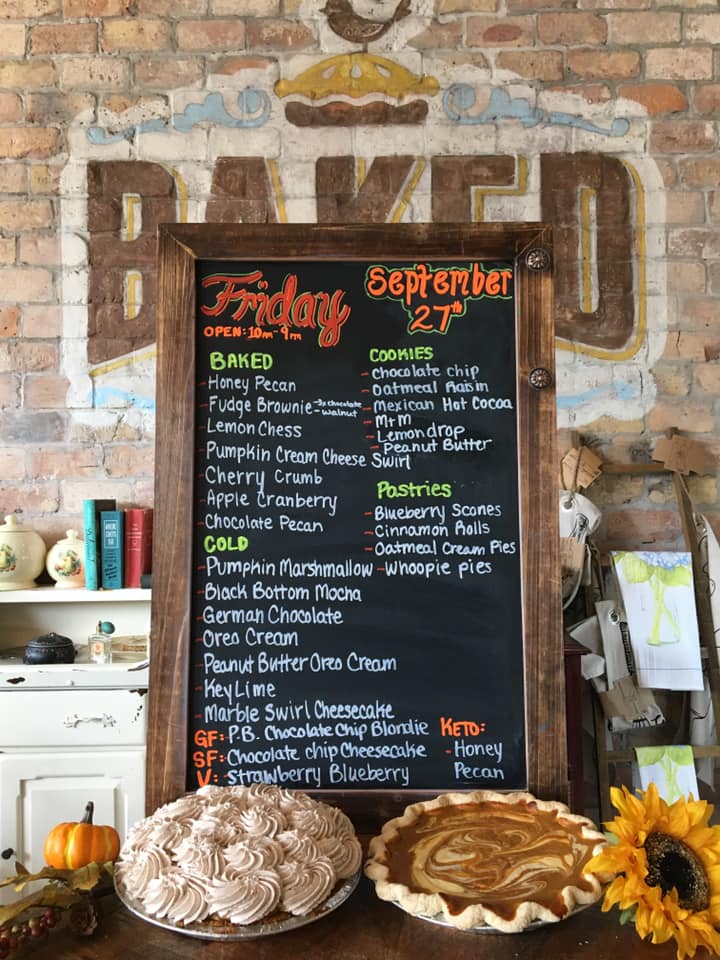 BAKED
Friday
OPEN: 10AM - 9PM
September
27th
BAKED
- Honey Pecan
- Fudge Brownie - 3x chocolate
- walnut
- Lemon Chess
- Pumpkin Cream Cheese Swirl
- Cherry Crumb
- Apple Cranberry
- Chocolate Pecan
COLD
- Pumpkin Marshmallow
- Black Bottom Mocha
- German Chocolate
- Oreo Cream
- Peanut Butter Oreo Cream
- Key Lime
- Marble Swirl Cheesecake
GF: - P.B. Chocolate Chip Blondie
SF: - Chocolate chip Cheesecake
V: - Strawberry Blueberry
COOKIES
- Chocolate chip
- Oatmeal Raisin
- Mexican Hot Cocoa
- M+M
- Lemon drop
- Peanut Butter
Pastries
- Blueberry Scones
- Cinnamon Rolls
- Oatmeal Cream Pies
- Whoopie pies
KETO:
- Honey
Pecan